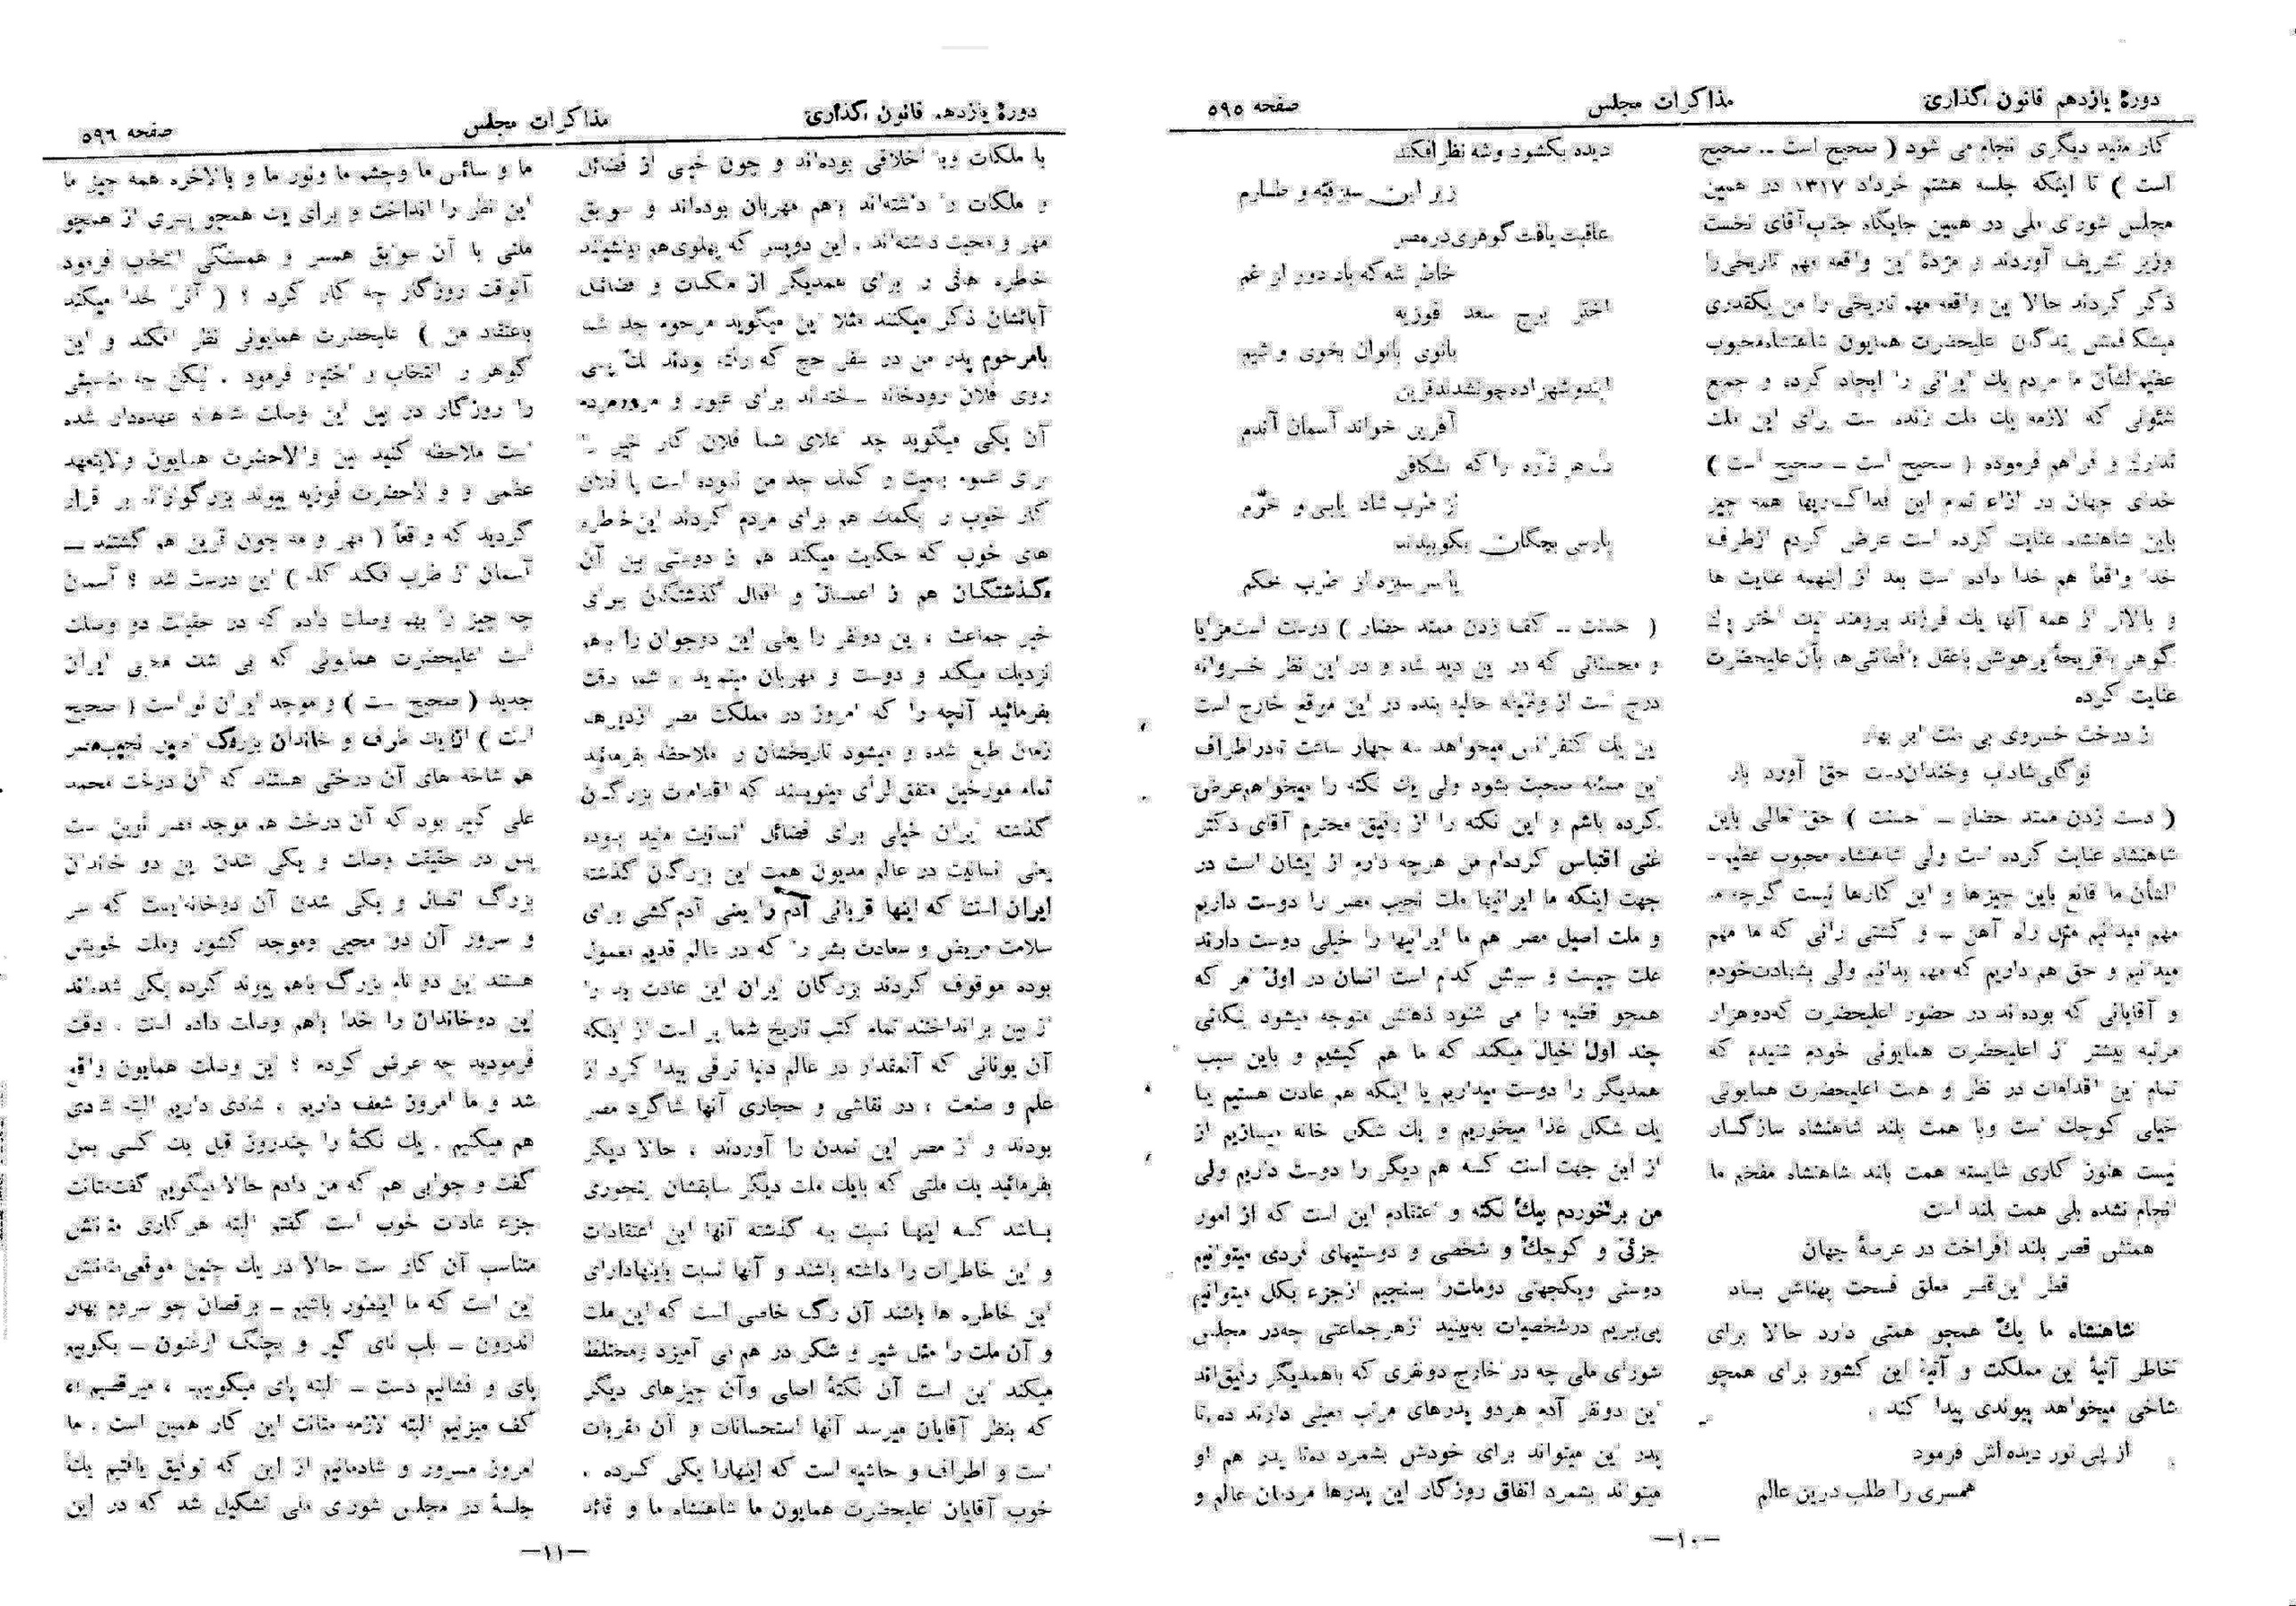 دورهٔ یازدهم قانون گذاری
مذاکرات مجلس
صفحه ۵۹۵
کار مفید دیگری انجام می شود ( صحیح است ــ صحیح
است ) تا اینکه جلسه هشتم خرداد ۱۳۱۷ در همین
مجلس شورای ملی در همین جایگاه جناب آقای نخست
وزیر تشریف آوردند و مژدهٔ این واقعه مهم تاریخی را
ذکر کردند حالا این واقعه مهم تاریخی را من یکقدری
میشکافمش بندگان علیحضرت همایون شاهنشاه محبوب
عظیم الشأن ما مردم یك ایرانی را ایجاد کرده و جمیع
شئونی که لازمه یك ملت زنده است برای این ملت
تدارك و فراهم فرموده ( صحیح است ــ صحیح است )
خدای جهان در ازاء تمام این فداکاریها همه چیز
باین شاهنشاه عنایت کرده است عرض کردم از طرف
خدا واقعاً هم خدا داده است بعد از اینهمه عنایت ها
و بالاتر از همه آنها یك فرزند برومند یك اختر یك
گوهر با قریحهٔ پرهوش باعقل با لیاقتی هم بآن علیحضرت
عنایت کرده
از درخت خسروی بی منت ابر بهار
نوگلی شاداب وخندان دست حق آورد بار
( دست زدن ممتد حضار ــ احسنت ) حق تعالی باین
شاهنشاه عنایت کرده است ولی شاهنشاه محبوب عظیم ــ
الشأن ما قانع باین چیزها و این کارها نیست گرچه ما
مهم میدانیم مثل راه آهن ــ و کشتی رانی که ما مهم
میدانیم و حق هم داریم که مهم بدانیم ولی بشهادت خودم
و آقایانی که بوده اند در حضور اعلیحضرت که دوهزار
مرتبه بیشتر از اعلیحضرت همایونی خودم شنیدم که
تمام این اقدامات در نظر و همت اعلیحضرت همایونی
خیلی کوچك است وبا همت بلند شاهنشاه سازگار
نیست هنوز کاری شایسته همت بلند شاهنشاه مفخم ما
انجام نشده بلی همت بلند است
همتش قصر بلند افراخت در عرصهٔ جهان
قطر این قصر معلق فسحت پهناش باد
شاهنشاه ما یك همچو همتی دارد حالا برای
خاطر آتیهٔ این مملکت و آتیهٔ این کشور برای همچو
شاخی میخواهد پیوندی پیدا کند .
از پی نور دیده اش فرمود
همسری را طلب درین عالم
دیده بگشود وشه نظر افکند
زیر این سبز قبه و طارم
عاقبت یافت گوهری در مصر
خاطر شه که باد دور از غم
اختر برج سعد فوزیه
بانوی بانوان بخوی و شیم
ایندو شهزاده چونشدند قرین
آفرین خواند آسمان آندم
دل هر ذره را که بشکافی
از طرب شاد یابی و خرّم
پارسی بچگان بکوبیدند
پا سر سبزه از طرب محکم
( احسنت ــ کف زدن ممتد حضار ) درست است مزایا
و محسناتی که در این دید شاه و در این نظر خسروانه
درج است از وظیفه حالیه بنده در این موقع خارج است
این یك کنفرانس میخواهد سه چهار ساعت تا در اطراف
این مسئله صحبت بشود ولی یك نکته را میخواهم عرض
کرده باشم و این نکته را از رفیق محترم آقای دکتر
غنی اقتباس کرده ام من هرچه دارم از ایشان است در
جهت اینکه ما ایرانیها ملت نجیب مصر را دوست داریم
و ملت اصیل مصر هم ما ایرانیها را خیلی دوست دارند
علت چیست و سببش کدام است انسان در اول امر که
همچو قضیه را می شنود ذهنش متوجه میشود بنکاتی
چند اول خیال میکند که ما هم کیشیم و باین سبب
همدیگر را دوست میداریم یا اینکه هم عادت هستیم یا
یك شکل غذا میخوریم و یك شکل خانه میسازیم از
از این جهت است که هم دیگر را دوست داریم ولی
من برخوردم بیك نکته و اعتقادم این است که از امور
جزئی و کوچك و شخصی و دوستیهای فردی میتوانیم
دوستی ویکجهتی دوملت را بسنجیم از جزء بکل میتوانیم
پی ببریم در شخصیات به بینید از هر جماعتی چه در مجلس
شورای ملی چه در خارج دونفری که باهمدیگر رفیق اند
این دونفر آدم هردو پدرهای مرتب معینی دارند ده تا
پدر این میتواند برای خودش بشمرد ده تا پدر هم او
میتواند بشمرد اتفاق روزگار این پدرها مردمان عالم و
ــ۱۰ــ
دورهٔ یازدهم قانون گذاری
مذاکرات مجلس
صفحه ۵۹۶
با ملکات وبا اخلاقی بوده اند و چون خیلی از فضائل
و ملکات را داشته اند باهم مهربان بوده اند و سوابق
مهر و محبت داشته اند . این دو پسر که پهلوی هم بنشینند
خاطره هائی را برای همدیگر از ملکات و فضائل
آبائشان ذکر میکنند مثلا این میگوید مرحوم جد شما
بامرحوم پدر من در سفر حج که رفته بودند یك پلی
روی فلان رودخانه ساخته اند برای عبور و مرور مردم
آن یکی میگوید جد اعلای شما فلان کار خیر را
برای عموم بمعیت و کمك جد من نموده است یا فلان
کار خوب را بکمك هم برای مردم کردند این خاطره
های خوب که حکایت میکند هم از دوستی بین آن
گذشتگان هم از اعمال و افعال گذشتگان برای
خیر جماعت ، این دونفر را یعنی این دوجوان را بهم
نزدیك میکند و دوست و مهربان مینماید . شما دقت
بفرمائید آنچه را که امروز در مملکت مصر از دیرهای
زمان طبع شده و میشود تاریخشان را ملاحظه بفرمائید
تمام مورخین متفق لرأی مینویسند که اقدامات بزرگان
گذشته ایران خیلی برای فضائل انسانیت مفید بوده
یعنی انسانیت در عالم مدیون همت این بزرگان گذشته
ایران است که اینها قربانی آدم را یعنی آدم کشی برای
سلامت مریض و سعادت بشر را که در عالم قدیم معمول
بوده موقوف کردند بزرگان ایران این عادت بد را
از بین برانداختند تمام کتب تاریخ شما پر است از اینکه
آن یونانی که آنمقدار در عالم دنیا ترقی پیدا کرد از
علم و صنعت ، در نقاشی و حجاری آنها شاگرد مصر
بودند و از مصر این تمدن را آوردند ، حالا دیگر
بفرمائید یك ملتی که بایك ملت دیگر سابقشان اینجوری
باشد که اینها نسبت به گذشته آنها این اعتقادات
و این خاطرات را داشته باشند و آنها نسبت باینها دارای
این خاطره ها باشند آن رگ خاصی است که این ملت
و آن ملت را مثل شیر و شکر در هم می آمیزد و مختلط
میکند این است آن نکتهٔ اصلی وآن چیزهای دیگر
که بنظر آقایان میرسد آنها استحسانات و آن مقربات
است و اطراف و حاشیه است که اینهارا یکی کرده .
خوب آقایان علیحضرت همایون ما شاهنشاه ما و قائد
ما و سائس ما وچشم ما ونور ما و بالاخره همه چیز ما
این نظر را انداخت و برای یك همچو پسری از همچو
ملتی با آن سوابق همسر و همبستگی انتخاب فرمود
آنوقت روزگار چه کار کرد ؟ ( آنرا خدا میکند
بهعتقاد من ) علیحضرت همایونی نظر افکند و این
گوهر را انتخاب و اختیار فرمود . لیکن چه مناسبتی
را روزگار در بین این وصلت شاهانه عهده دار شده
است ملاحظه کنید بین والاحضرت همایون ولایتعهد
عظمی و والاحضرت فوزیه پیوند بزرگوارانه بر قرار
گردید که واقعاً ( مهر و مه چون قرین هم گشتند ــ
آسمان از طرب فکند کلاه ) این درست شد ؟ آسمان
چه چیز را بهم وصلت داده که در حقیقت دو وصلت
است اعلیحضرت همایونی که بی شك محیی ایران
جدید ( صحیح است ) و موجد ایران نو است ( صحیح
است ) از یك طرف و خاندان بزرگ همین نجیب مصر
هم شاخه های آن درختی هستند که آن درخت محمد
علی کبیر بود که آن درخت هم موجد مصر نوین است
پس در حقیقت وصلت و یکی شدن این دو خاندان
بزرگ اتصال و یکی شدن آن دوخانه ایست که سر
و سرور آن دو محیی وموجد کشور وملت خویش
هستند این دو نام بزرگ باهم پیوند کرده یکی شده اند
این دوخاندان را خدا باهم وصلت داده است . دقت
فرمودید چه عرض کردم ؟ این وصلت همایون واقع
شد و ما امروز شعف داریم ، شادی داریم البته شادی
هم میکنیم . یك نکتهٔ را چندروز قبل یك کسی بمن
گفت و جوابی هم که من دادم حالا میگویم گفت متانت
جزء عادات خوب است گفتم البته هر کاری متانتش
متناسب آن کار است حالا در یك چنین موقعی متانتش
این است که ما اینطور باشیم ــ برقصان چو سروم بهار
اندرون ــ بلب نای گیر و بچنگ ارغنون ــ بکوبیم
پای و فشانیم دست ــ البته پای میکوبیم ، میرقصیم ،
کف میزنیم البته لازمه متانت این کار همین است . ما
امروز مسرور و شادمانیم از این که توفیق یافتیم یك
جلسهٔ در مجلس شورای ملی تشکیل شد که در این
ــ۱۱ــ